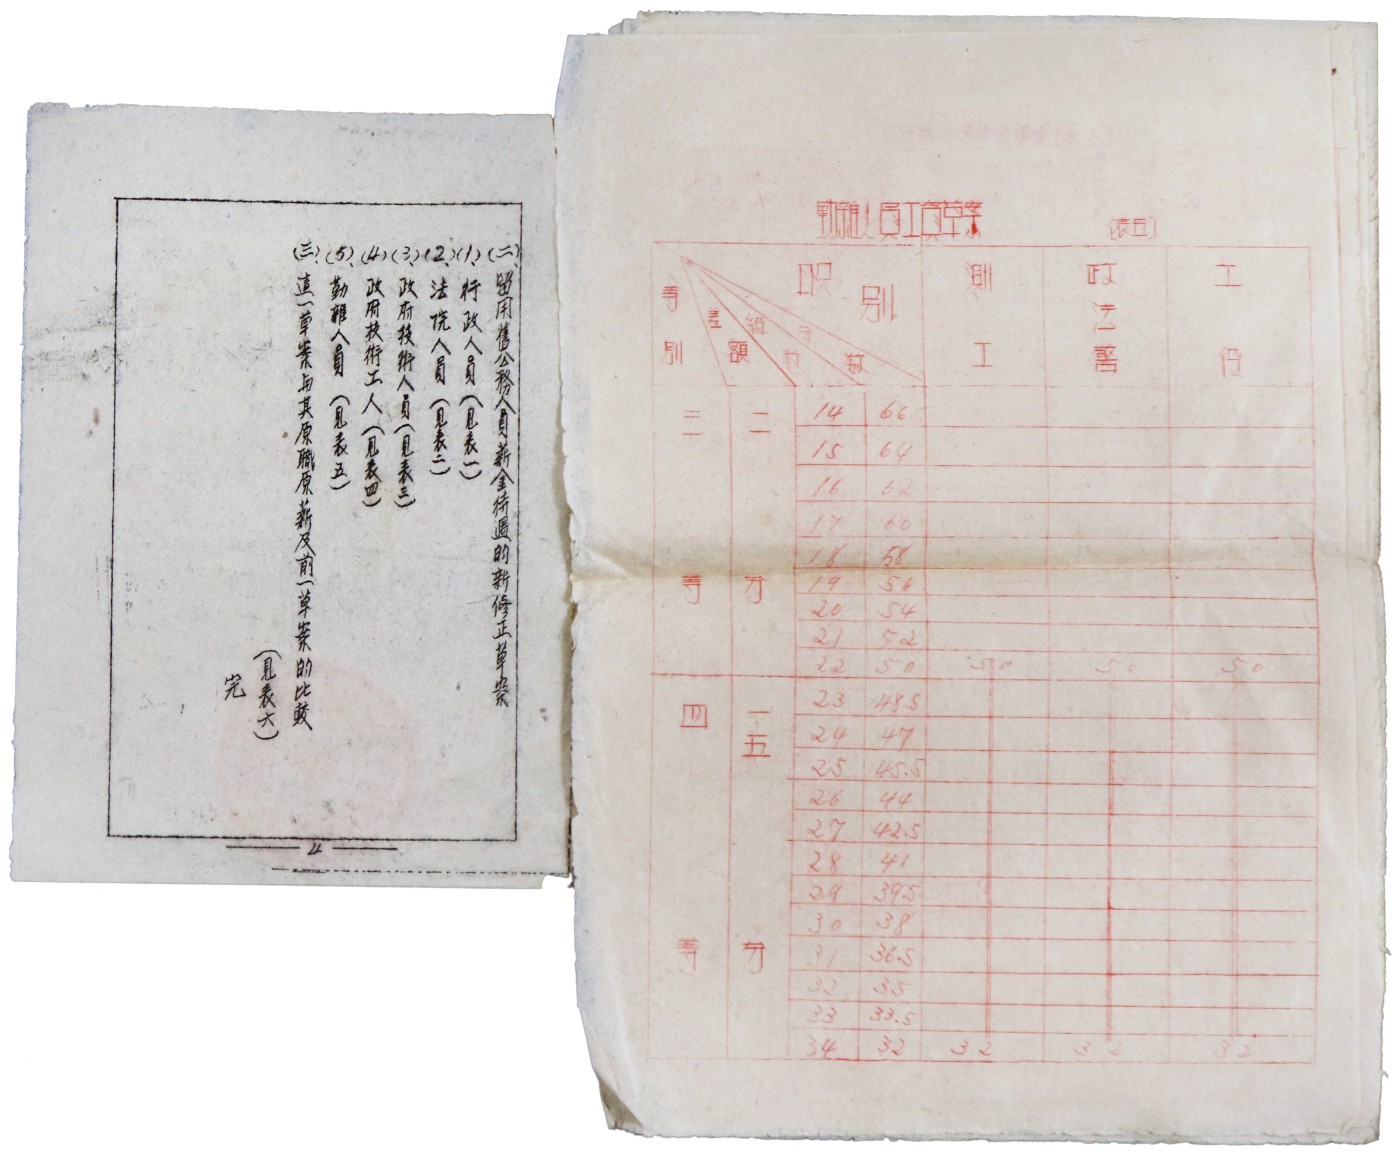 (二)、留用舊公務人員薪金待遇的新修正草案
(1)、行政人員(見表一)
(2)、法院人員(見表二)
(3)、政府技術人員(見表三)
(4)、政府技術工人(見表四)
(5)、勤雜人員(見表五)
(三)、這一草案与其原職原薪及前一草案的比較
(見表六)
完
4
勤雜人員工資草案
(表五)
等別 差額 級数 分数 职別 測工 政法警 工役
三等 二分
14 66
15 64
16 62
17 60
18 58
19 56
20 54
21 52
22 50 50 50 50
四等 一五分
23 48.5
24 47
25 45.5
26 44
27 42.5
28 41
29 39.5
30 38
31 36.5
32 35
33 33.5
34 32 32 32 32